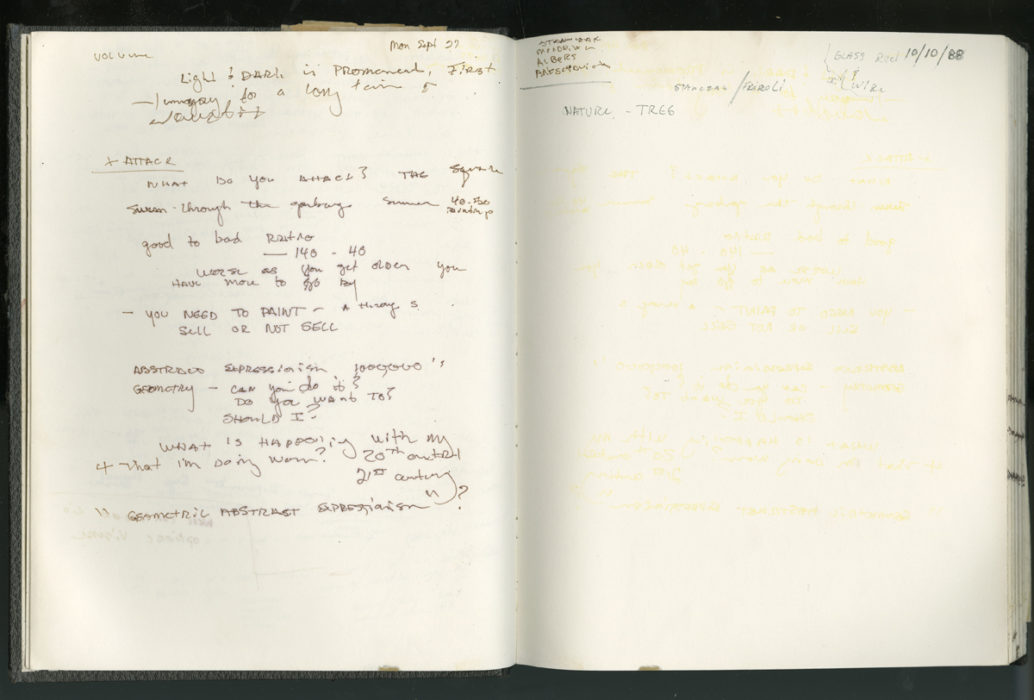 VOLUME
Mon Sept 27
Light & DARK is PROMANENT, FIRST
Imagery for a long term
+ ATTACK
WHAT DO YOU ATTACK? THE Square
through the garbage Summer 40-50
good to bad RATIO
— 140 - 40
WORSE as you get older you
HAVE more to go by
- YOU NEED TO PAINT - A
SELL OR NOT SELL
ABSTRACT EXPRESSIONISM 1000,000's
GEOMETRY - CAN you do it?
DO you want to?
SHOULD I?
WHAT IS HAPPENING with my
+ that I'm Doing now? 20th central
21st century
" GEOMETRIC ABSTRACT EXPRESSIONISM "?
MONDRIAN
ALBERS
GLASS ROD 10/10/88
WIRE
NATURE - TREE